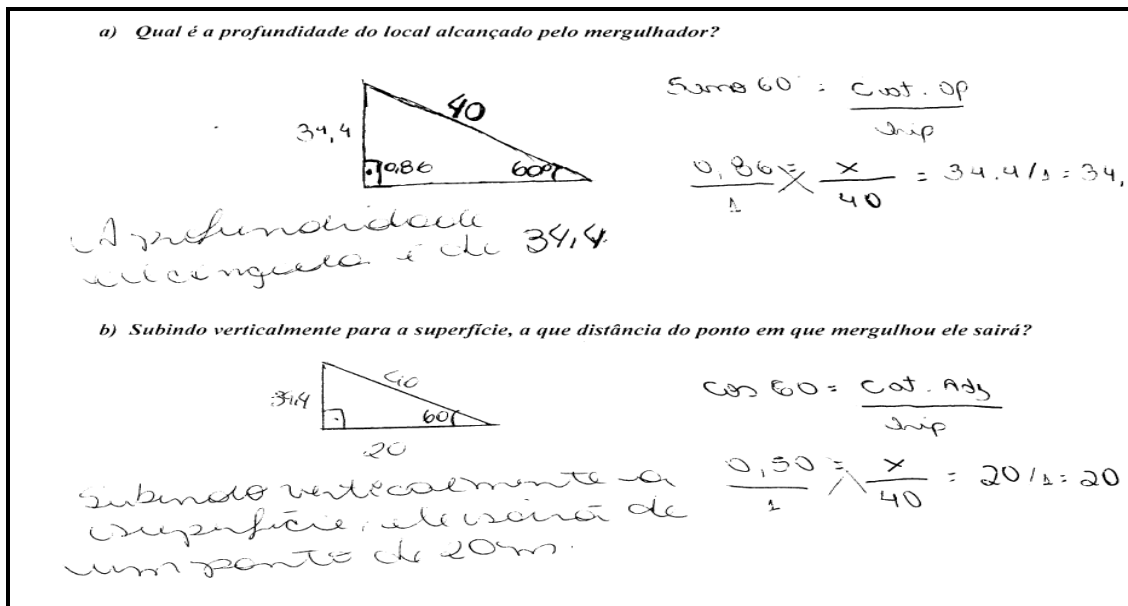 a) Qual é a profundidade do local alcançado pelo mergulhador?
Seno 60° = Cat. op
hip
40
34,4
0,86
60°
0,86 = x = 34.4/1 = 34,
1 40
A profundidade
é de 34,4.
b) Subindo verticalmente para a superfície, a que distância do ponto em que mergulhou ele sairá?
40
34,4
60°
20
cos 60 = Cat. Adj
hip
0,50 = x = 20/1 = 20
1 40
Subindo verticalmente a
superfície, ele sairá de
um ponto de 20m.